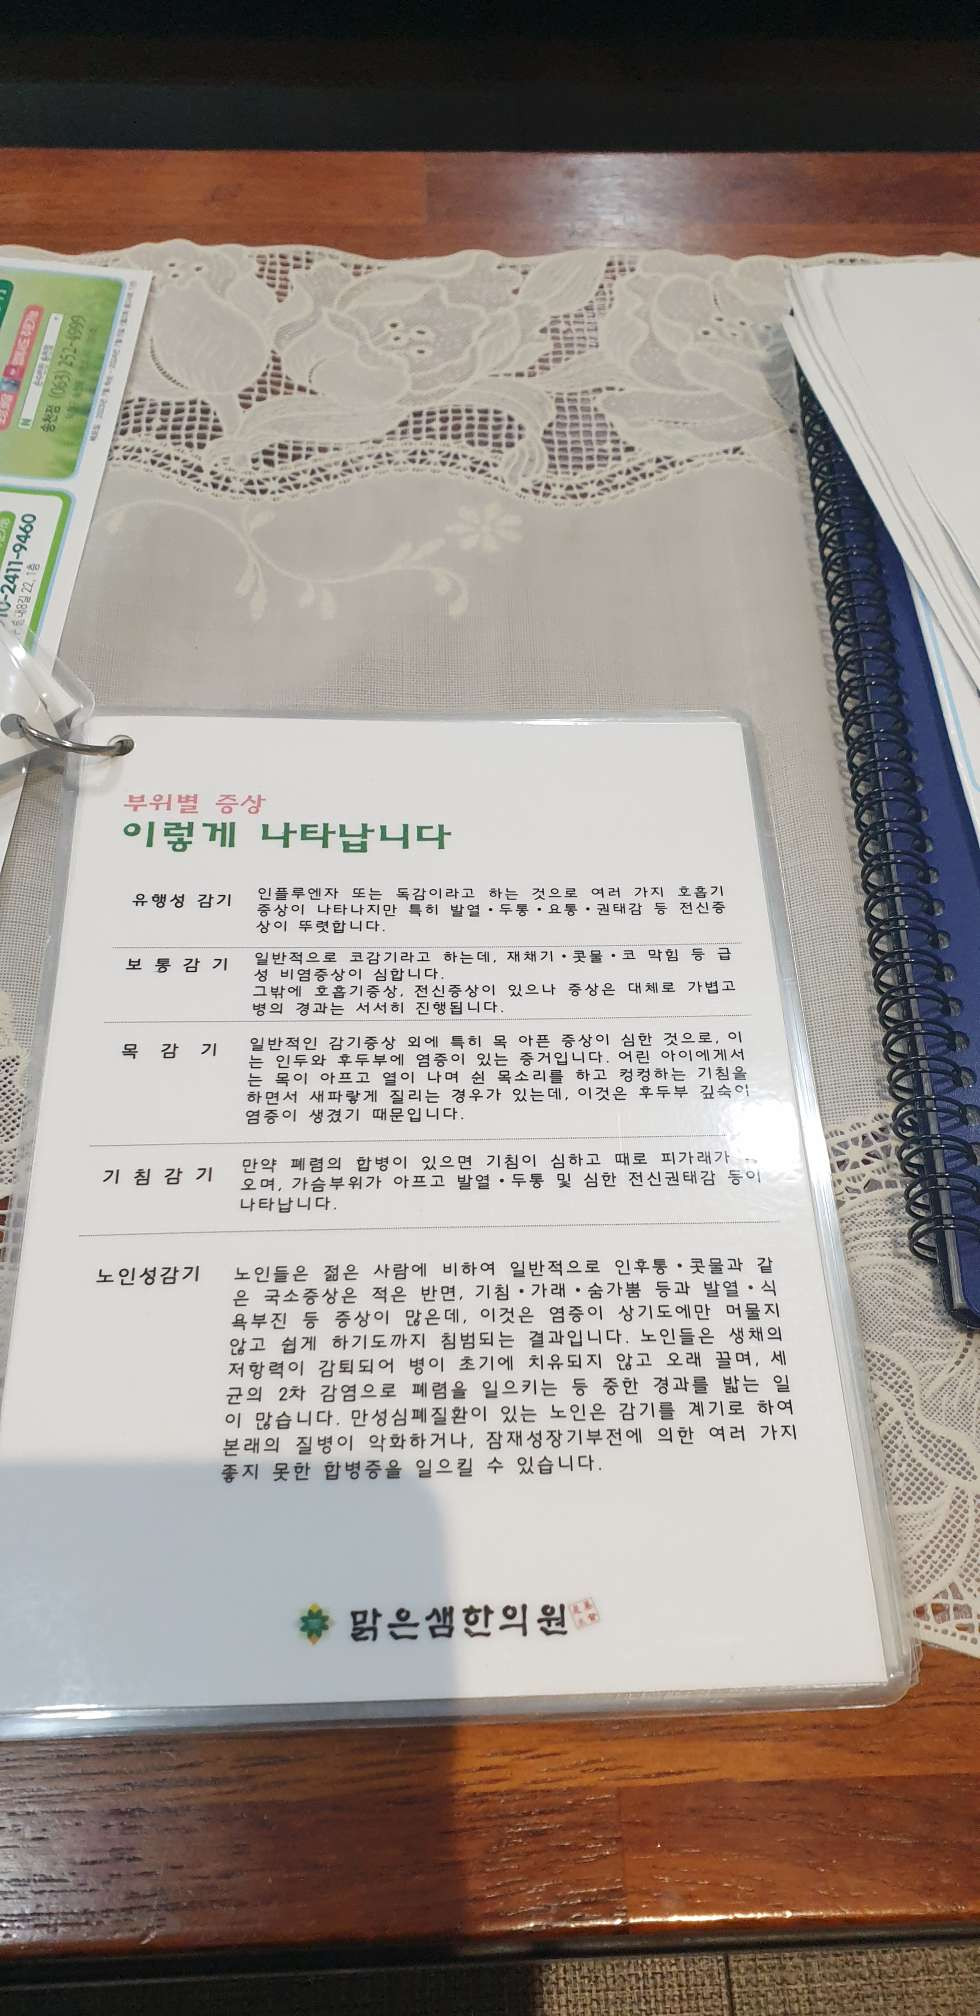 송천점 (063) 252-4999
0-2411-9460
내8길 22, 1층
부위별 증상
이렇게 나타납니다
유행성 감기
인플루엔자 또는 독감이라고 하는 것으로 여러 가지 호흡기
증상이 나타나지만 특히 발열·두통·요통·권태감 등 전신증
상이 뚜렷합니다.
보 통 감 기
일반적으로 코감기라고 하는데, 재채기·콧물·코 막힘 등 급
성 비염증상이 심합니다.
그밖에 호흡기증상, 전신증상이 있으나 증상은 대체로 가볍고
병의 경과는 서서히 진행됩니다.
목 감 기
일반적인 감기증상 외에 특히 목 아픈 증상이 심한 것으로, 이
는 인두와 후두부에 염증이 있는 증거입니다. 어린 아이에게서
는 목이 아프고 열이 나며 쉰 목소리를 하고 컹컹하는 기침을
하면서 새파랗게 질리는 경우가 있는데, 이것은 후두부 깊숙이
염증이 생겼기 때문입니다.
기 침 감 기
만약 폐렴의 합병이 있으면 기침이 심하고 때로 피가래가
오며, 가슴부위가 아프고 발열·두통 및 심한 전신권태감 등이
나타납니다.
노인성감기
노인들은 젊은 사람에 비하여 일반적으로 인후통·콧물과 같
은 국소증상은 적은 반면, 기침·가래·숨가쁨 등과 발열·식
욕부진 등 증상이 많은데, 이것은 염증이 상기도에만 머물지
않고 쉽게 하기도까지 침범되는 결과입니다. 노인들은 생체의
저항력이 감퇴되어 병이 초기에 치유되지 않고 오래 끌며, 세
균의 2차 감염으로 폐렴을 일으키는 등 중한 경과를 밟는 일
이 많습니다. 만성심폐질환이 있는 노인은 감기를 계기로 하여
본래의 질병이 악화하거나, 잠재성장기부전에 의한 여러 가지
좋지 못한 합병증을 일으킬 수 있습니다.
맑은샘한의원